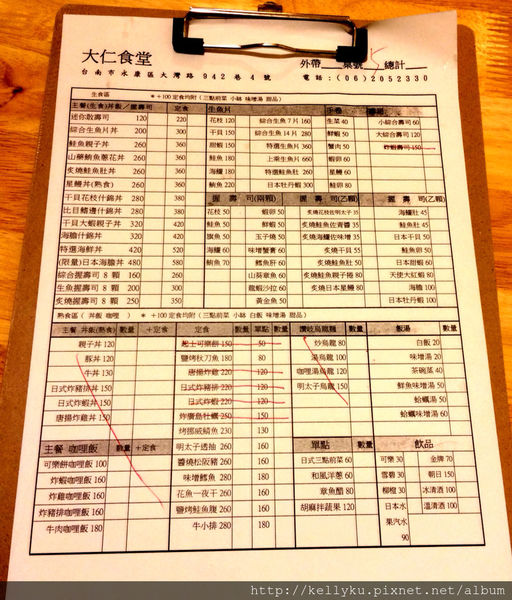 大仁食堂
外帶 桌號 5 總計
台南市永康區大灣路942巷4號
電話:(06)2052330
生食區 * +100 定食均附 (三點前菜 小缽 味增湯 甜品)
主餐(生食)丼飯／握壽司 定食
迷你散壽司 120 220
綜合生魚片丼 200 300
鮭魚親子丼 260 360
山藥鮪魚蔥花丼 260 360
炙燒鮭魚肚丼 260 360
星鰻丼(熟食) 260 360
花枝什錦丼 280 380
比目鰭邊什錦丼 280 380
干貝大蝦親子丼 320 420
海膽什錦丼 320 420
特選海鮮丼 420 520
(限量) 日本海膽丼 480 580
綜合握壽司 8 顆 160 260
生魚握壽司 8 顆 200 300
炙燒握壽司 8 顆 250 350
生魚片
花枝 120
干貝 150
甜蝦 150
鮭魚 180
海鱺 180
鮪魚 220
綜合生魚片 7片 160
綜合生魚片 14片 280
特選生魚片 360
上乘生魚片 360
特選鮭魚肚 260
日本牡丹蝦 300
手卷
生菜 40
鮮蝦 50
蟹肉 50
蝦卵 60
星鰻 60
鮭卵 80
小綜合壽司 60
大綜合壽司 120
炸蝦壽司 150
握壽司(兩顆)
花枝 50
鮭魚 50
旗魚 50
海鱺 60
鮪魚 70
蝦卵 50
鮮蝦 50
玉子燒 50
味增蟹膏 60
鱈魚肝 60
山葵章魚 60
龍蝦沙拉 60
黃金魚 50
握壽司(乙顆)
炙燒花枝佐明太子 35
炙燒鮭魚佐青醬 35
炙燒海鱺佐味增 35
炙燒干貝 55
炙燒鮭魚肚 50
炙燒鮭魚親子捲 80
炙燒日本星鰻 80
握壽司(乙顆)
海鱺肚 45
鮭魚肚 45
日本干貝 50
鮭魚卵 50
日本甜蝦 60
天使大紅蝦 80
海膽 100
日本牡丹蝦 100
熟食區 (丼飯 咖哩) * +100 定食均附 (三點前菜 小缽 白飯 味增湯 甜品)
主餐 丼飯(熟食) 數量 +定食
親子丼 120
豚丼 120
牛丼 130
日式炸豬排丼 150
日式炸蝦丼 150
唐揚炸雞丼 150
主餐 咖哩飯 數量 +定食
可樂餅咖哩飯 100
炸蝦咖哩飯 160
炸雞咖哩飯 160
炸豬排咖哩飯 160
牛肉咖哩飯 180
定食 數量 單點 數量
起士可樂餅 150 50
鹽烤秋刀魚 180 80
唐揚炸雞 220 120
日式炸豬排 220 120
日式炸蝦 220 120
炸廣島牡蠣 250 150
烤挪威鯖魚 230 130
明太子透抽 260 160
醬燒松阪豬 260 160
味增鱈魚 280 180
花魚一夜干 260 160
鹽烤鮭魚腹 260 160
牛小排 280 180
讚岐烏龍麵 數量
炒烏龍 80
湯烏龍 100
咖哩湯烏龍 120
明太子烏龍 150
飯湯 數量
白飯 20
味增湯 20
茶碗蒸 40
鮮魚味增湯 50
蛤蠣湯 50
蛤蠣味增湯 60
單點 數量
日式三點前菜 60
和風洋蔥 60
章魚醋 80
胡麻拌蔬果 120
飲品
可樂 30 金牌 70
雪碧 30 朝日 150
柳橙 30 冰清酒 100
日本水果汽水 90 溫清酒 100
http://kellyku.pixnet.net/album